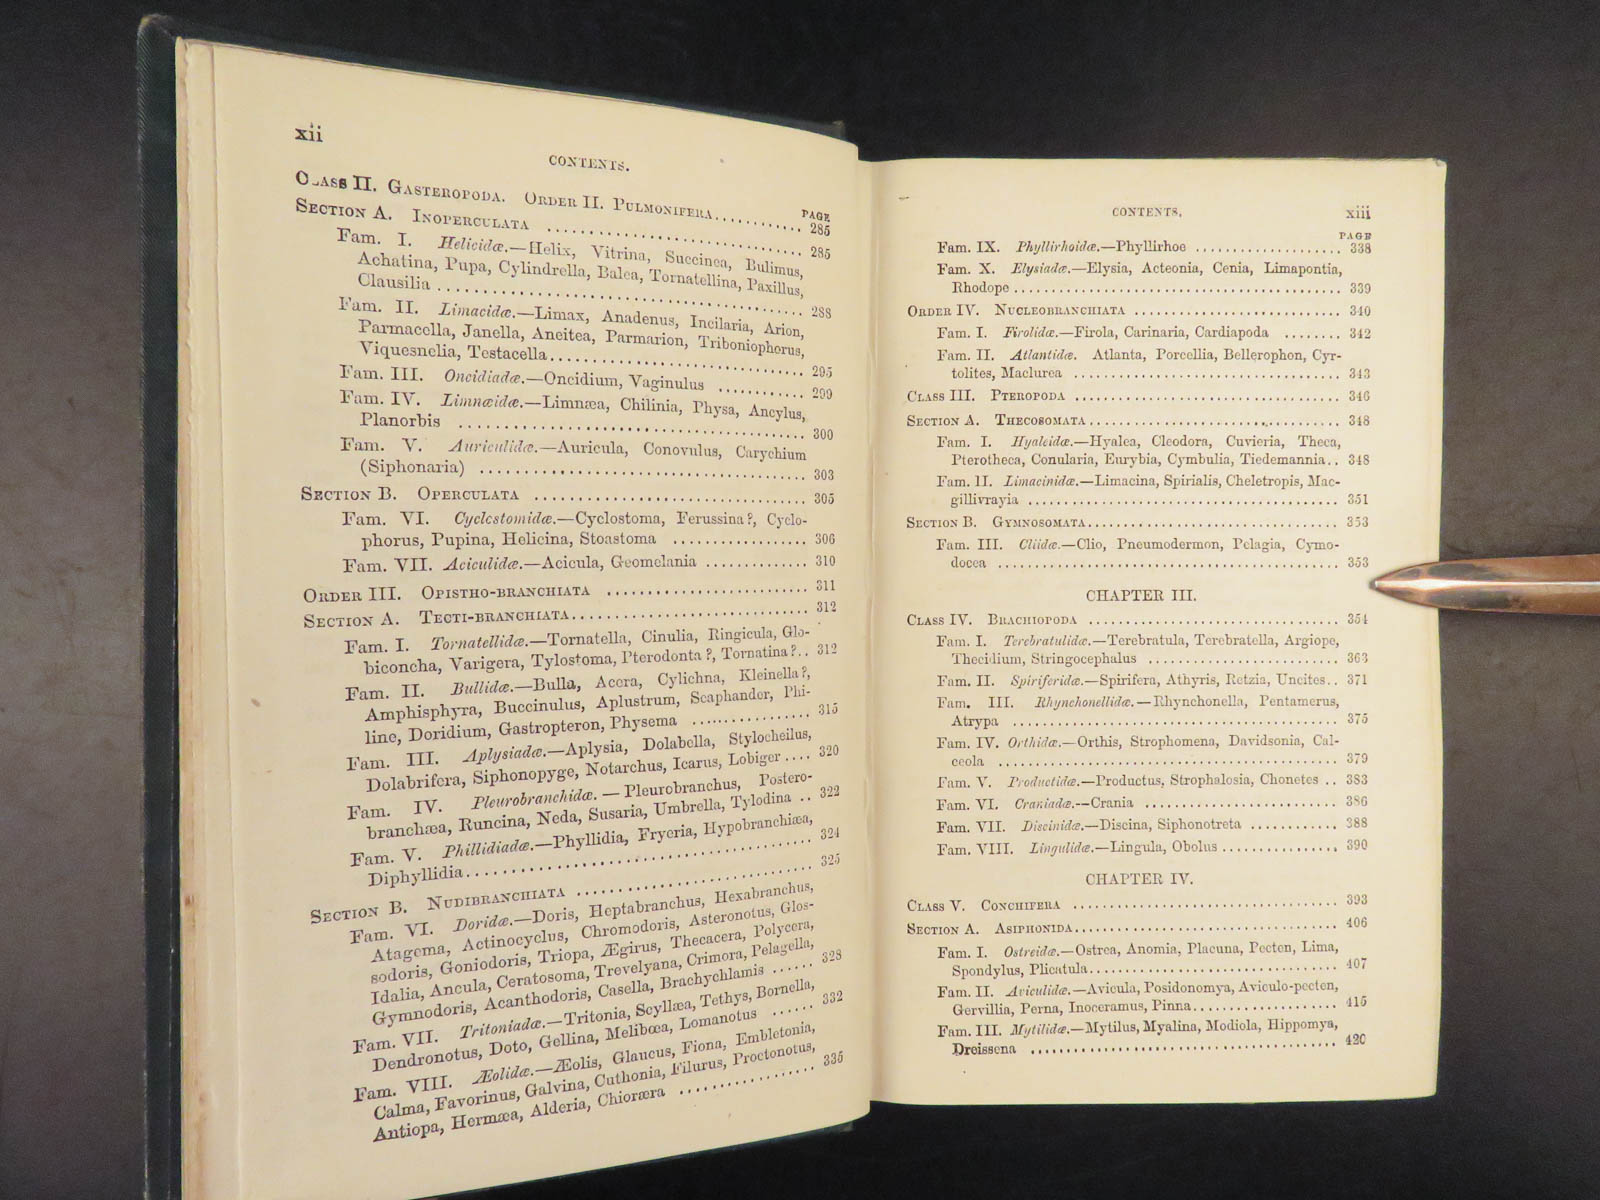 xii
CONTENTS.
PAGE
CLASS II. GASTEROPODA. ORDER II. PULMONIFERA........... 285
SECTION A. INOPERCULATA .............................. 285
Fam. I. Helicidæ.—Helix, Vitrina, Succinea, Bulimus,
Achatina, Pupa, Cylindrella, Balea, Tornatellina, Paxillus,
Clausilia .......................................... 288
Fam. II. Limacidæ.—Limax, Anadenus, Incilaria, Arion,
Parmacella, Janella, Aneitea, Parmarion, Triboniophorus,
Viquesnelia, Testacella............................. 295
Fam. III. Oncidiadæ.—Oncidium, Vaginulus ............ 299
Fam. IV. Limnæidæ.—Limnæa, Chilinia, Physa, Ancylus,
Planorbis .......................................... 300
Fam. V. Auriculidæ.—Auricula, Conovulus, Carychium
(Siphonaria) ....................................... 303
SECTION B. OPERCULATA ................................ 305
Fam. VI. Cyclostomidæ.—Cyclostoma, Ferussina?, Cyclo-
phorus, Pupina, Helicina, Stoastoma ................. 306
Fam. VII. Aciculidæ.—Acicula, Geomelania ............. 310
ORDER III. OPISTHO-BRANCHIATA ........................ 311
SECTION A. TECTI-BRANCHIATA........................... 312
Fam. I. Tornatellidæ.—Tornatella, Cinulia, Ringicula, Glo-
biconcha, Varigera, Tylostoma, Pterodonta?, Tornatina?.. 312
Fam. II. Bullidæ.—Bulla, Acera, Cylichna, Kleinella?,
Amphisphyra, Buccinulus, Aplustrum, Scaphander, Phi-
line, Doridium, Gastropteron, Physema ................ 315
Fam. III. Aplysiadæ.—Aplysia, Dolabella, Stylocheilus,
Dolabrifera, Siphonopyge, Notarchus, Icarus, Lobiger .... 320
Fam. IV. Pleurobranchidæ.—Pleurobranchus, Postero-
branchæa, Runcina, Neda, Susaria, Umbrella, Tylodina .. 322
Fam. V. Phillidiadæ.—Phyllidia, Fryeria, Hypobranchiæa,
Diphyllidia........................................ 324
SECTION B. NUDIBRANCHIATA ............................ 325
Fam. VI. Doridæ.—Doris, Heptabranchus, Hexabranchus,
Atagema, Actinocyclus, Chromodoris, Asteronotus, Glos-
sodoris, Goniodoris, Triopa, Ægirus, Thecacera, Polycera,
Idalia, Ancula, Ceratosoma, Trevelyana, Crimora, Pelagella,
Gymnodoris, Acanthodoris, Casella, Brachychlamis ...... 328
Fam. VII. Tritoniadæ.—Tritonia, Scyllæa, Tethys, Bornella,
Dendronotus, Doto, Gellina, Melibœa, Lomanotus ...... 332
Fam. VIII. Æolidæ.—Æolis, Glaucus, Fiona, Embletonia,
Calma, Favorinus, Galvina, Cuthonia, Filurus, Proctonotus,
Antiopa, Hermæa, Alderia, Chioræra .................. 335
CONTENTS. xiii
PAGE
Fam. IX. Phyllirhoidæ.—Phyllirhoe ................... 338
Fam. X. Elysiadæ.—Elysia, Acteonia, Cenia, Limapontia,
Rhodope............................................ 339
ORDER IV. NUCLEOBRANCHIATA ........................... 340
Fam. I. Firolidæ.—Firola, Carinaria, Cardiapoda ........ 342
Fam. II. Atlantidæ. Atlanta, Porcellia, Bellerophon, Cyr-
tolites, Maclurea .................................. 343
CLASS III. PTEROPODA ................................. 346
SECTION A. THECOSOMATA................................ 348
Fam. I. Hyaleidæ.—Hyalea, Cleodora, Cuvieria, Theca,
Pterotheca, Conularia, Eurybia, Cymbulia, Tiedemannia.. 348
Fam. II. Limacinidæ.—Limacina, Spirialis, Cheletropis, Mac-
gillivrayia ........................................ 351
SECTION B. GYMNOSOMATA................................ 353
Fam. III. Cliidæ.—Clio, Pneumodermon, Pelagia, Cymo-
docea .............................................. 353
CHAPTER III.
CLASS IV. BRACHIOPODA ................................ 354
Fam. I. Terebratulidæ.—Terebratula, Terebratella, Argiope,
Thecidium, Stringocephalus ......................... 363
Fam. II. Spiriferidæ.—Spirifera, Athyris, Retzia, Uncites.. 371
Fam. III. Rhynchonellidæ.—Rhynchonella, Pentamerus,
Atrypa ............................................. 375
Fam. IV. Orthidæ.—Orthis, Strophomena, Davidsonia, Cal-
ceola .............................................. 379
Fam. V. Productidæ.—Productus, Strophalosia, Chonetes .. 383
Fam. VI. Craniadæ.—Crania ........................... 386
Fam. VII. Discinidæ.—Discina, Siphonotreta ............ 388
Fam. VIII. Lingulidæ.—Lingula, Obolus................ 390
CHAPTER IV.
CLASS V. CONCHIFERA .................................. 393
SECTION A. ASIPHONIDA................................. 406
Fam. I. Ostreidæ.—Ostrea, Anomia, Placuna, Pecten, Lima,
Spondylus, Plicatula................................ 407
Fam. II. Aviculidæ.—Avicula, Posidonomya, Aviculo-pecten,
Gervillia, Perna, Inoceramus, Pinna.................. 415
Fam. III. Mytilidæ.—Mytilus, Myalina, Modiola, Hippomya,
Dreissena .......................................... 420